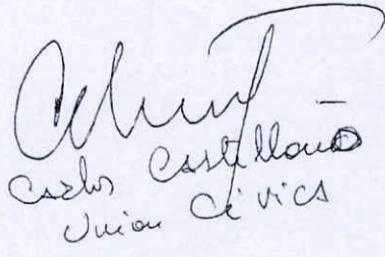 Carlos Castellano
Union Cívica